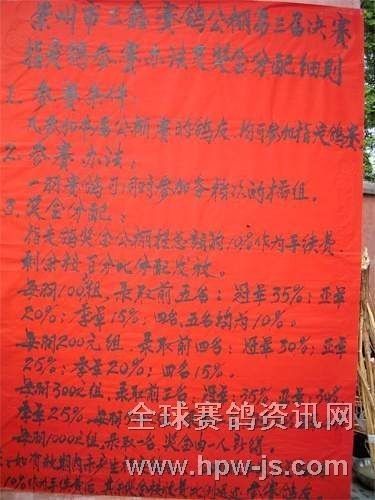 崇州市三鑫赛鸽公棚第三届决赛
指定鸽参赛办法及奖金分配细则
1. 参赛条件:
凡参加本届公棚赛的鸽友,均可参加指定鸽赛
2. 参赛办法:
一羽赛鸽可同时参加各档次的插组。
3. 奖金分配:
指定鸽奖金公棚按总额的10%作为手续费
剩余按百分比分配发放。
每羽100元组,录取前五名:冠军35%;亚军
20%;季军15%,四名,五名均为10%。
每羽200元组,录取前四名:冠军30%;亚军
25%;季军20%;四名15%。
每羽300元组,录取前三名,冠军35%,亚军30%
季军25%
每羽1000元组,录取一名,奖金由一人获得
如有效期内未产生
10%作为手续费后
全球赛鸽资讯网
www.hpw-js.com